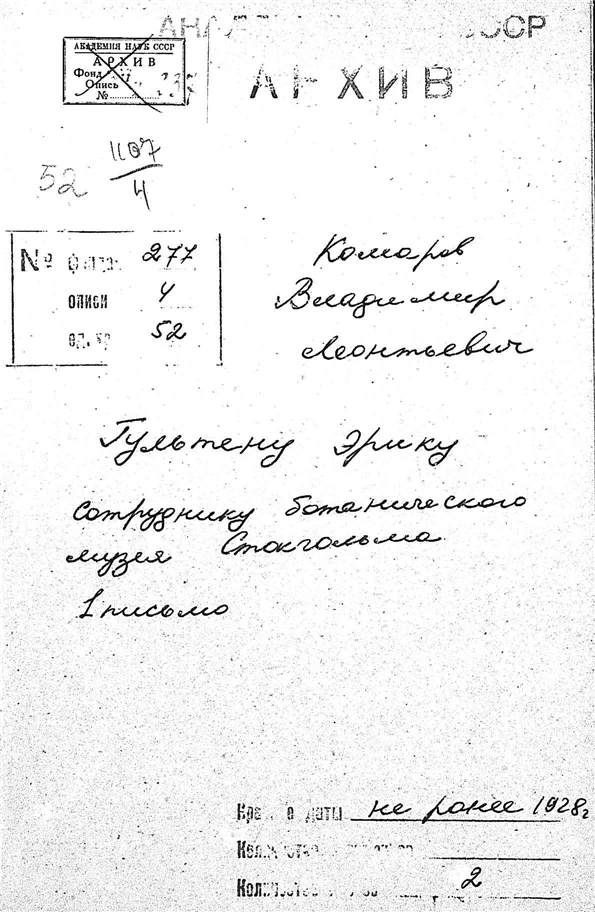 СССР
АРХИВ
АКАДЕМИЯ НАУК СССР
АРХИВ
Фонд
Опись
№
1107
4
52
№ фонда 277
описи 4
ед. хр 52
Комаров
Владимир
Леонтьевич
Гультену Эрику
сотруднику ботанического
музея Стокгольма
1 письмо
даты не ранее 1928г
Количество
Количество 2